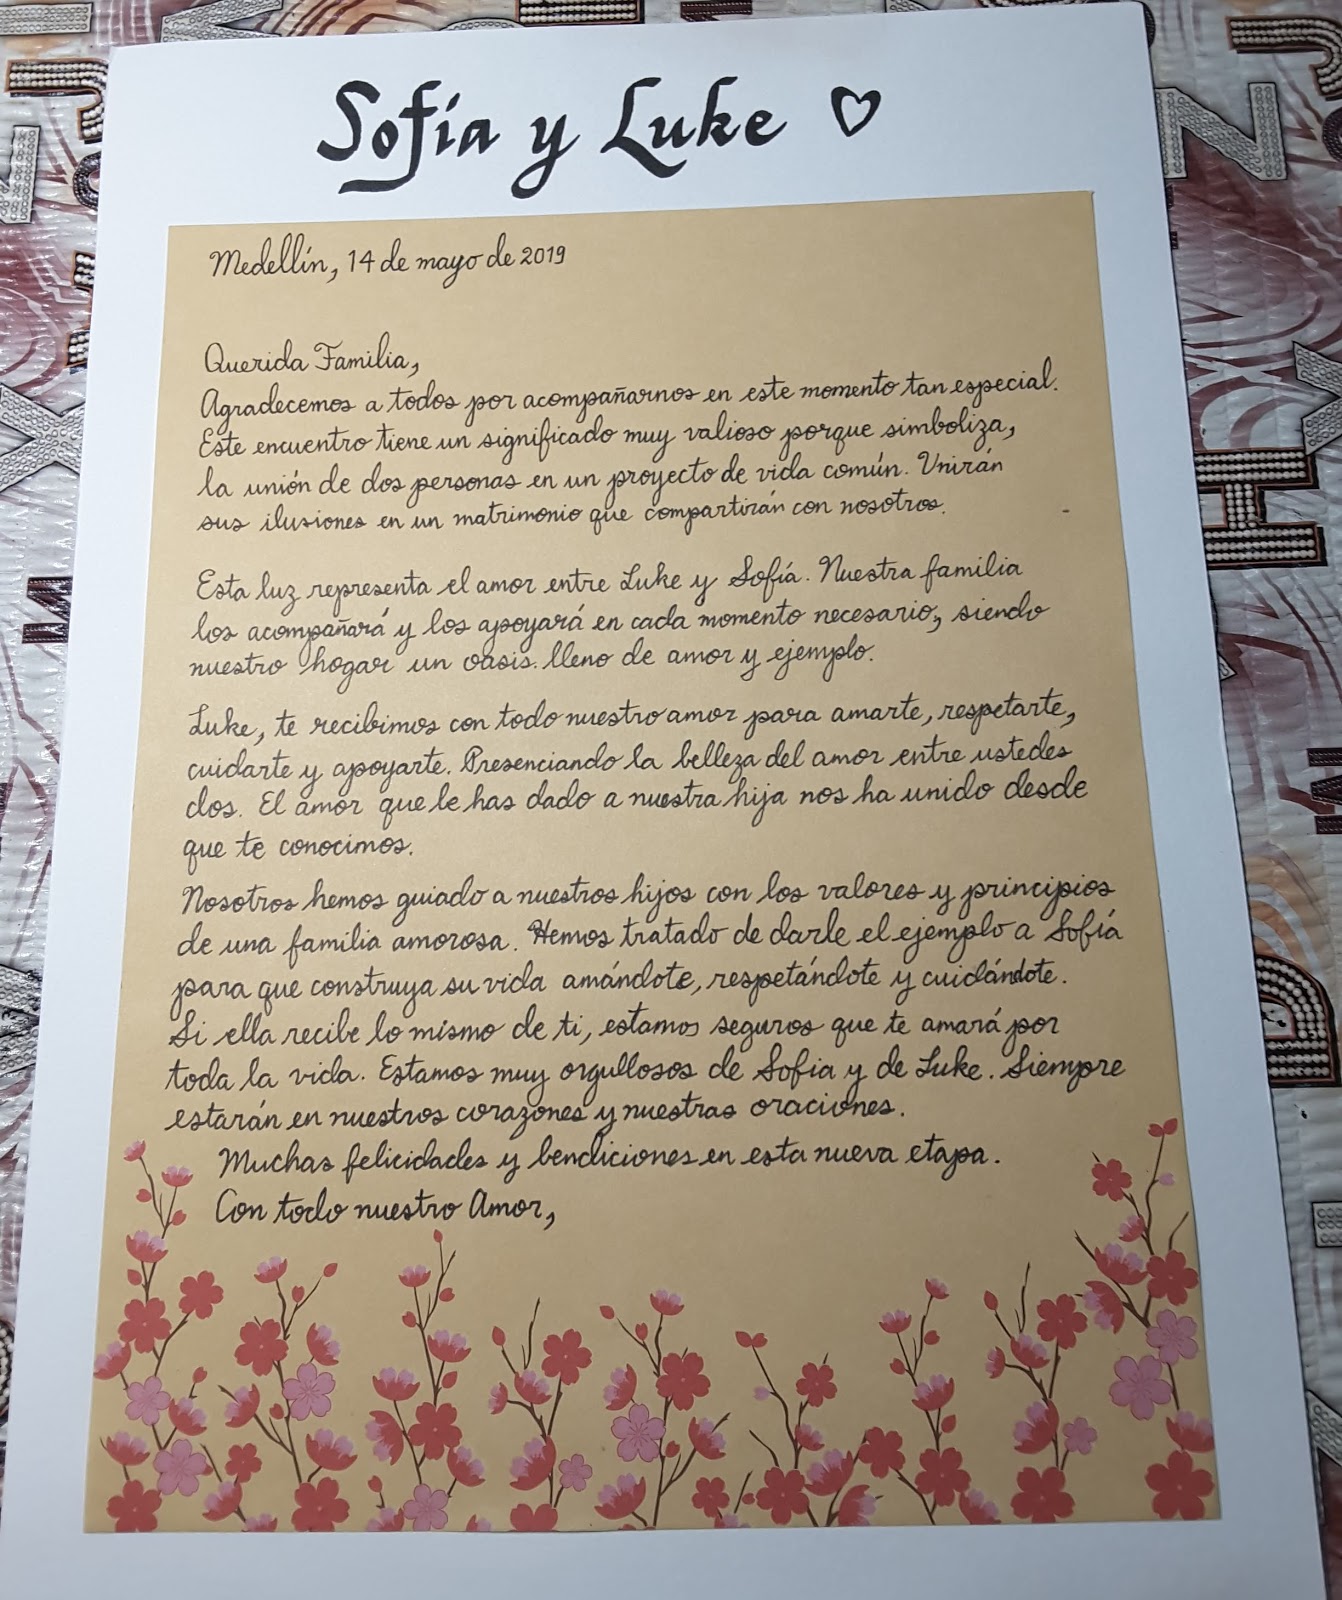 Sofía y Luke ♡
Medellín, 14 de mayo de 2019
Querida Familia,
Agradecemos a todos por acompañarnos en este momento tan especial.
Este encuentro tiene un significado muy valioso porque simboliza,
la unión de dos personas en un proyecto de vida común. Unirán
sus ilusiones en un matrimonio que compartirán con nosotros.
Esta luz representa el amor entre Luke y Sofía. Nuestra familia
los acompañará y los apoyará en cada momento necesario, siendo
nuestro hogar un oasis. lleno de amor y ejemplo.
Luke, te recibimos con todo nuestro amor para amarte, respetarte,
cuidarte y apoyarte. Presenciando la belleza del amor entre ustedes
dos. El amor que le has dado a nuestra hija nos ha unido desde
que te conocimos.
Nosotros hemos guiado a nuestros hijos con los valores y principios
de una familia amorosa. Hemos tratado de darle el ejemplo a Sofía
para que construya su vida amándote, respetándote y cuidándote.
Si ella recibe lo mismo de ti, estamos seguros que te amará por
toda la vida. Estamos muy orgullosos de Sofia y de Luke. Siempre
estarán en nuestros corazones y nuestras oraciones.
Muchas felicidades y bendiciones en esta nueva etapa.
Con todo nuestro Amor,